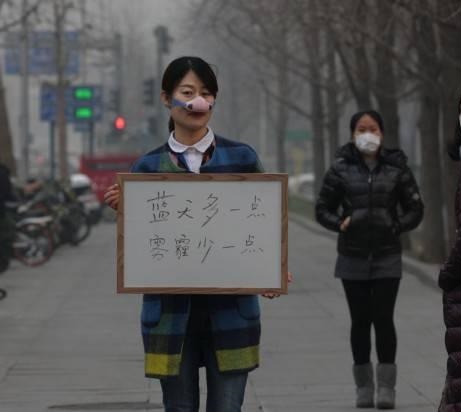 蓝天多一点
雾霾少一点